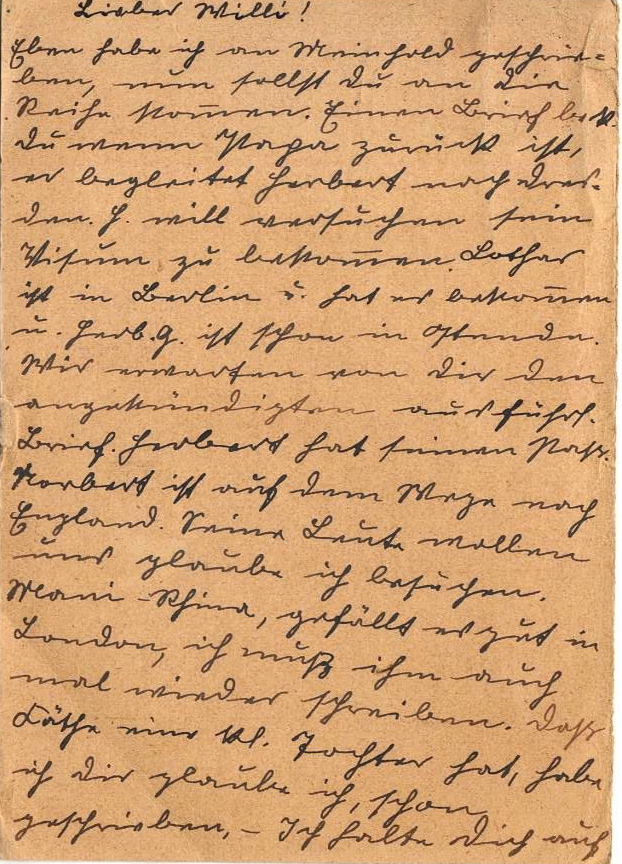 Lieber Willi!
Eben habe ich an Meinhold geschrie=
ben, nun sollst Du an die
Reihe kom̅en. Einen Brief bek.
Du wenn Papa zurück ist,
er begleitet Herbert nach Dres-
den. H. will versuchen sein
Visum zu bekom̅en. Lothar
ist in Berlin u. hat es bekom̅en
u. Herb. G. ist schon in Ostende.
Wir erwarten von Dir den
angekündigten ausführl.
Brief. Herbert hat seinen Pass.
Norbert ist auf dem Wege nach
England. Seine Leute wollen
uns glaube ich besuchen.
Mani - Rhina, gefällt es gut in
London, ich muß ihm auch
mal wieder schreiben. Dass
Käthe eine kl. Tochter hat, habe
ich Dir glaube ich, schon
geschrieben, - Ich halte Dich auf